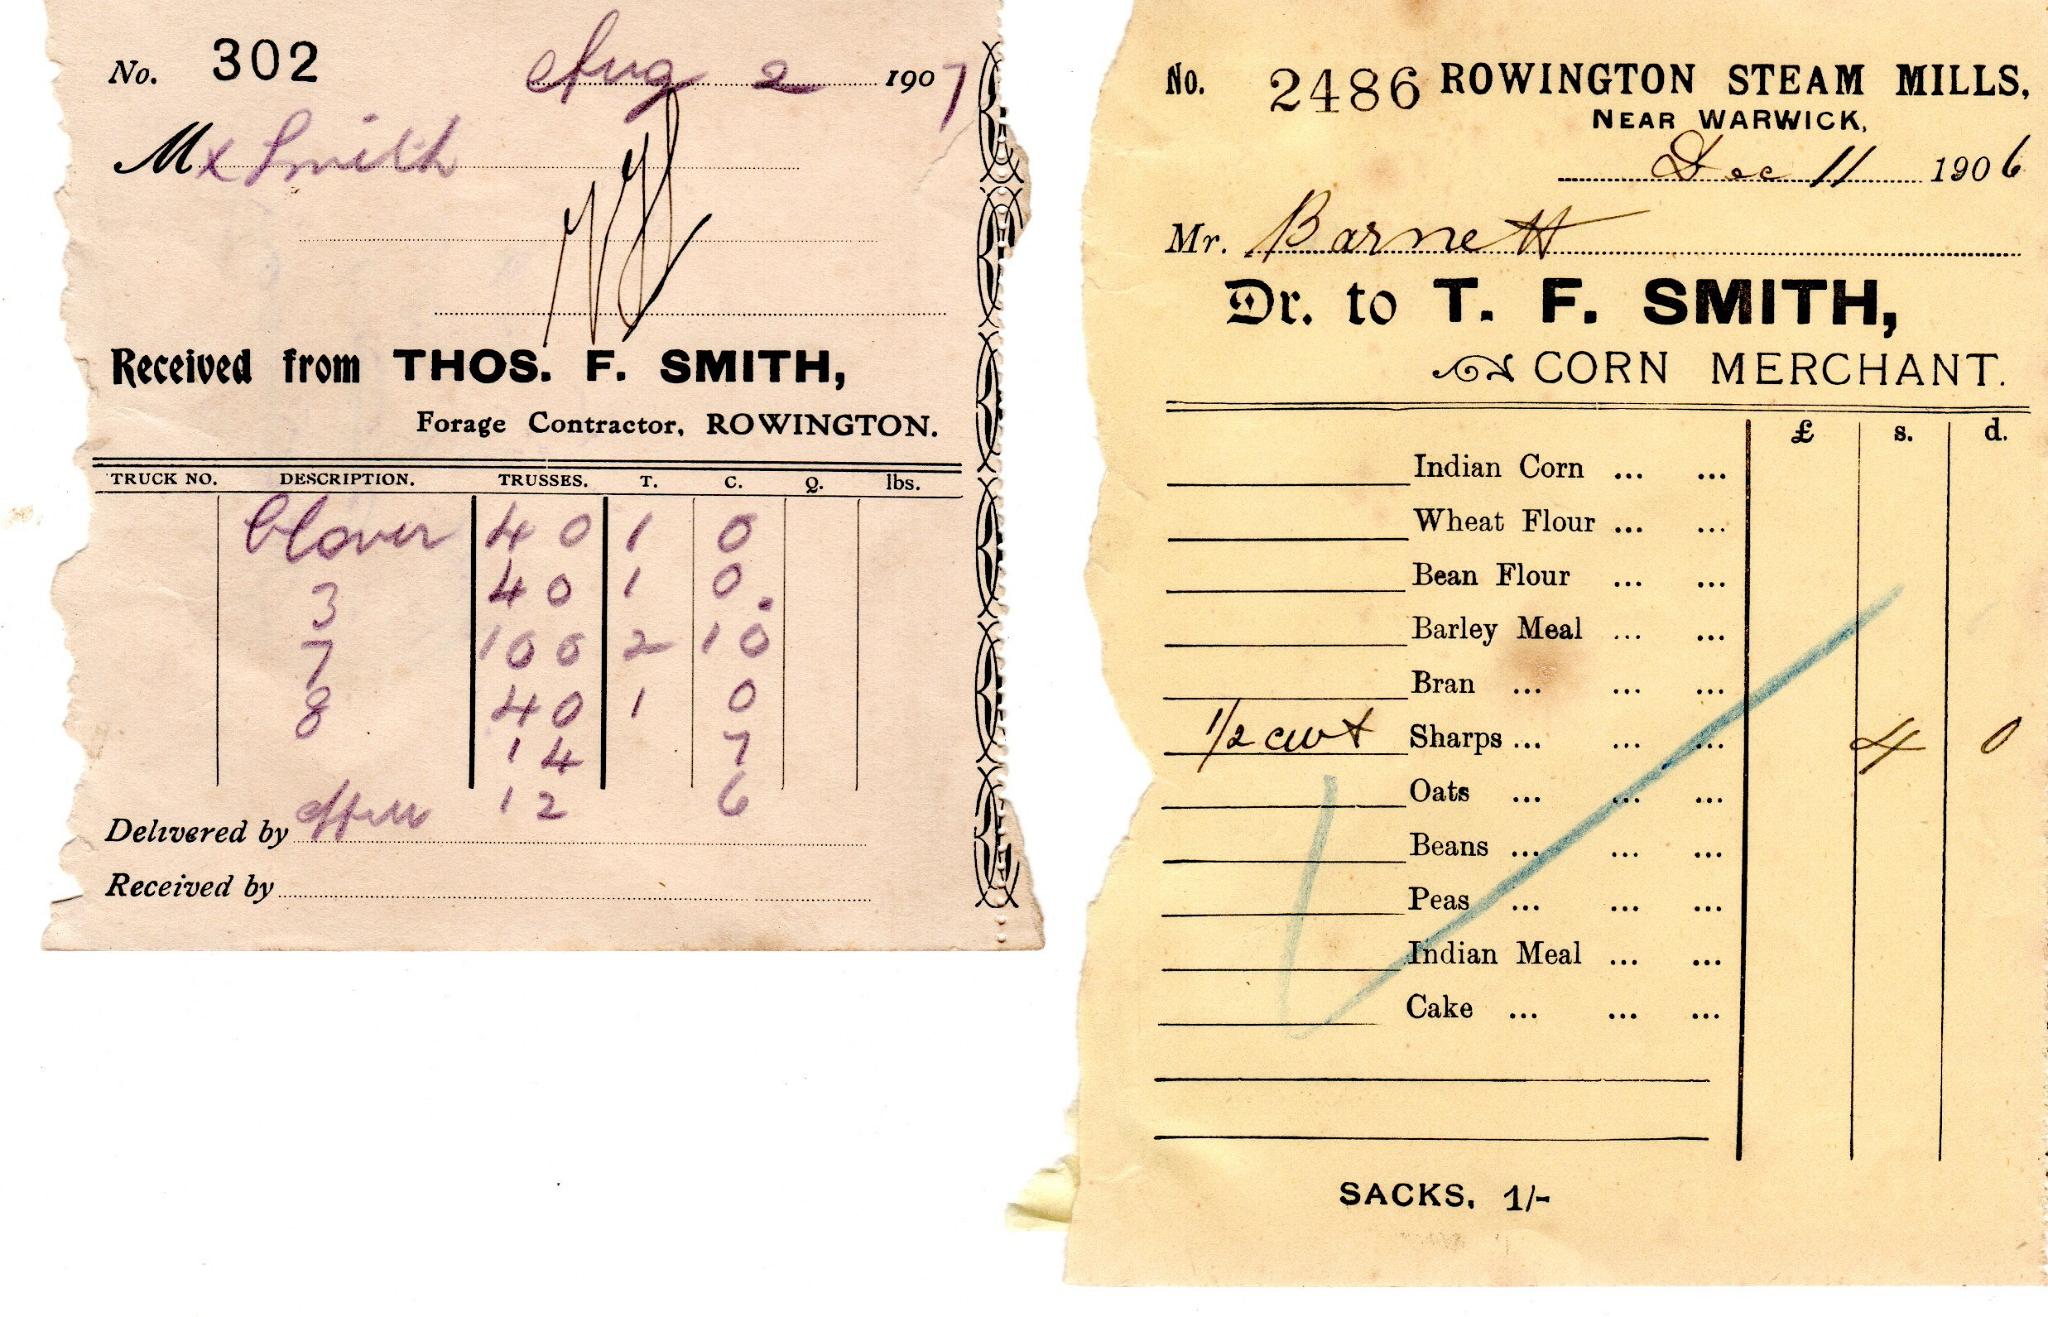 No. 302 Aug 2 1907
Mr Smith
Received from THOS. F. SMITH,
Forage Contractor, ROWINGTON.
TRUCK NO. DESCRIPTION. TRUSSES. T. C. Q. lbs.
Clover 40 1 0
3 40 1 0.
7 100 2 10
8 40 1 0
14 7
12 6
Delivered by
Received by
No. 2486 ROWINGTON STEAM MILLS,
NEAR WARWICK,
Dec 11 1906
Mr. Barnett
Dr. to T. F. SMITH,
CORN MERCHANT.
£ s. d.
Indian Corn ... ...
Wheat Flour ... ...
Bean Flour ... ...
Barley Meal ... ...
Bran ... ... ...
1/2 cwt Sharps ... ... ... 4 0
Oats ... ... ...
Beans ... ... ...
Peas ... ... ...
Indian Meal ... ...
Cake ... ... ...
SACKS, 1/-